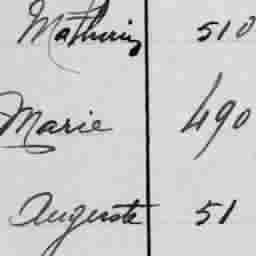 Mathurin 510
Marie 490
Auguste 51